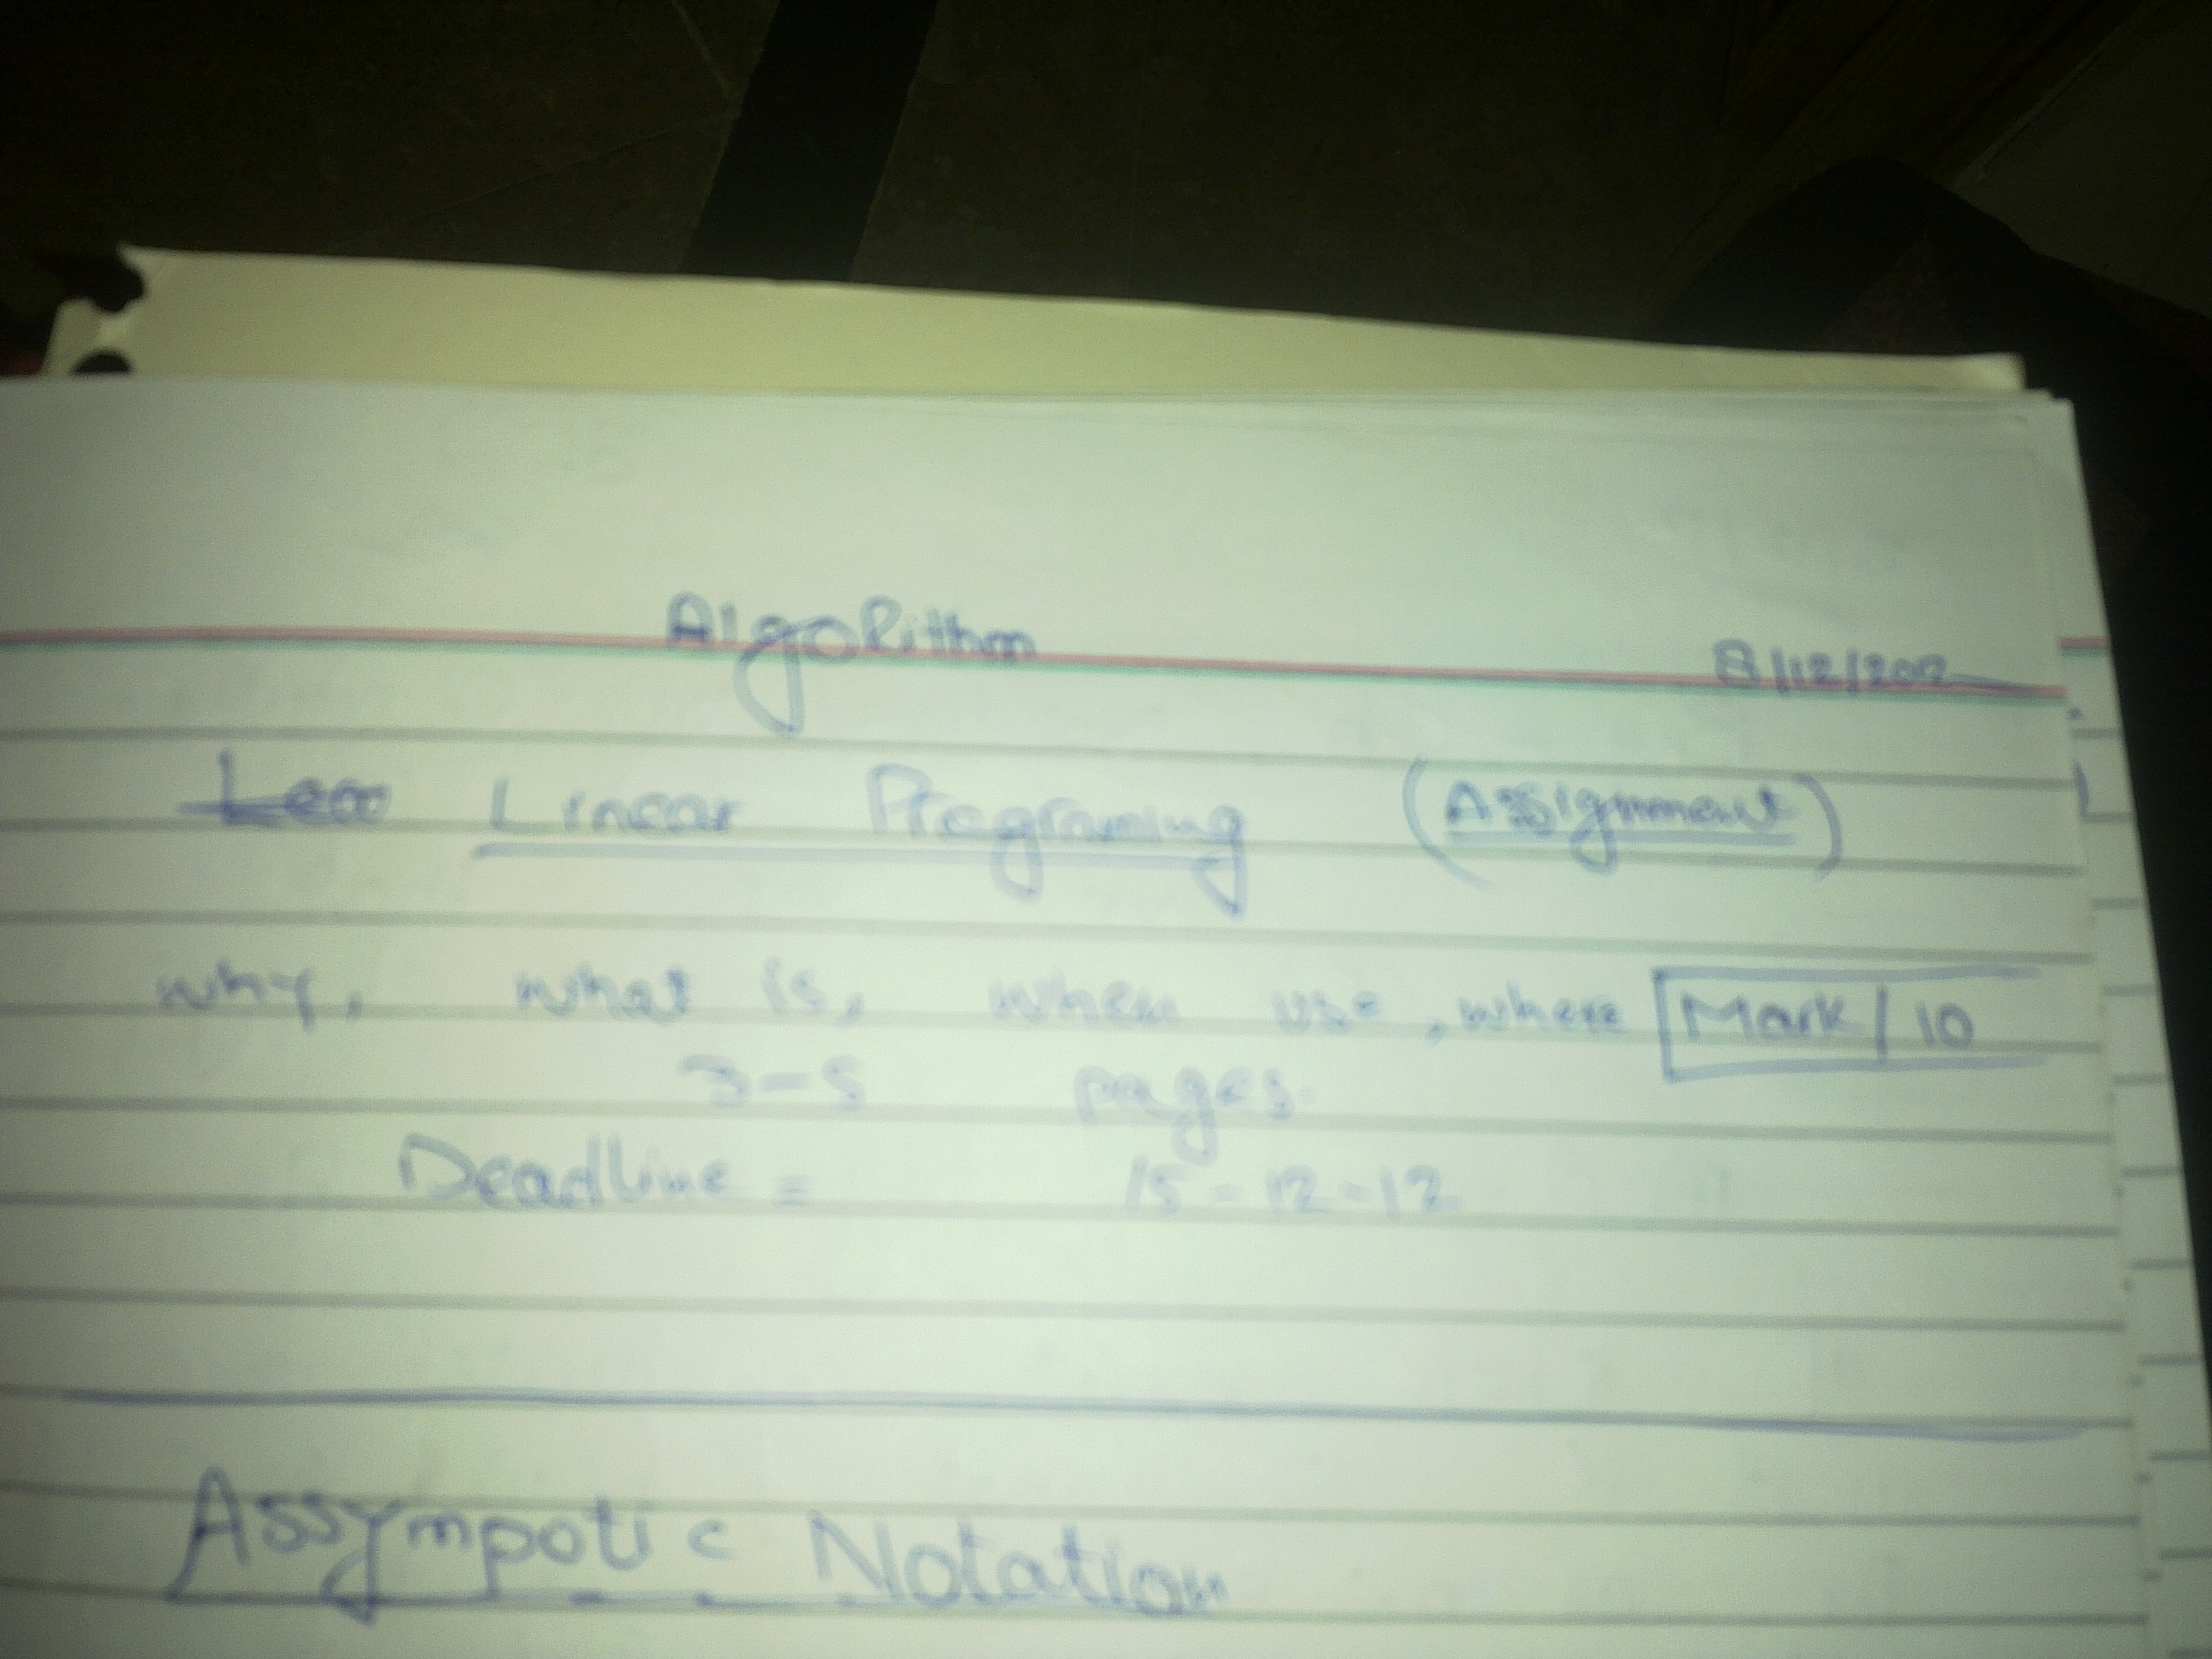 Algorithm
8/12/2012
Linear Programing (Assignment)
why, what is, when use, where Mark/10
3-5 pages.
Deadline = 15-12-12
Assympotic Notation